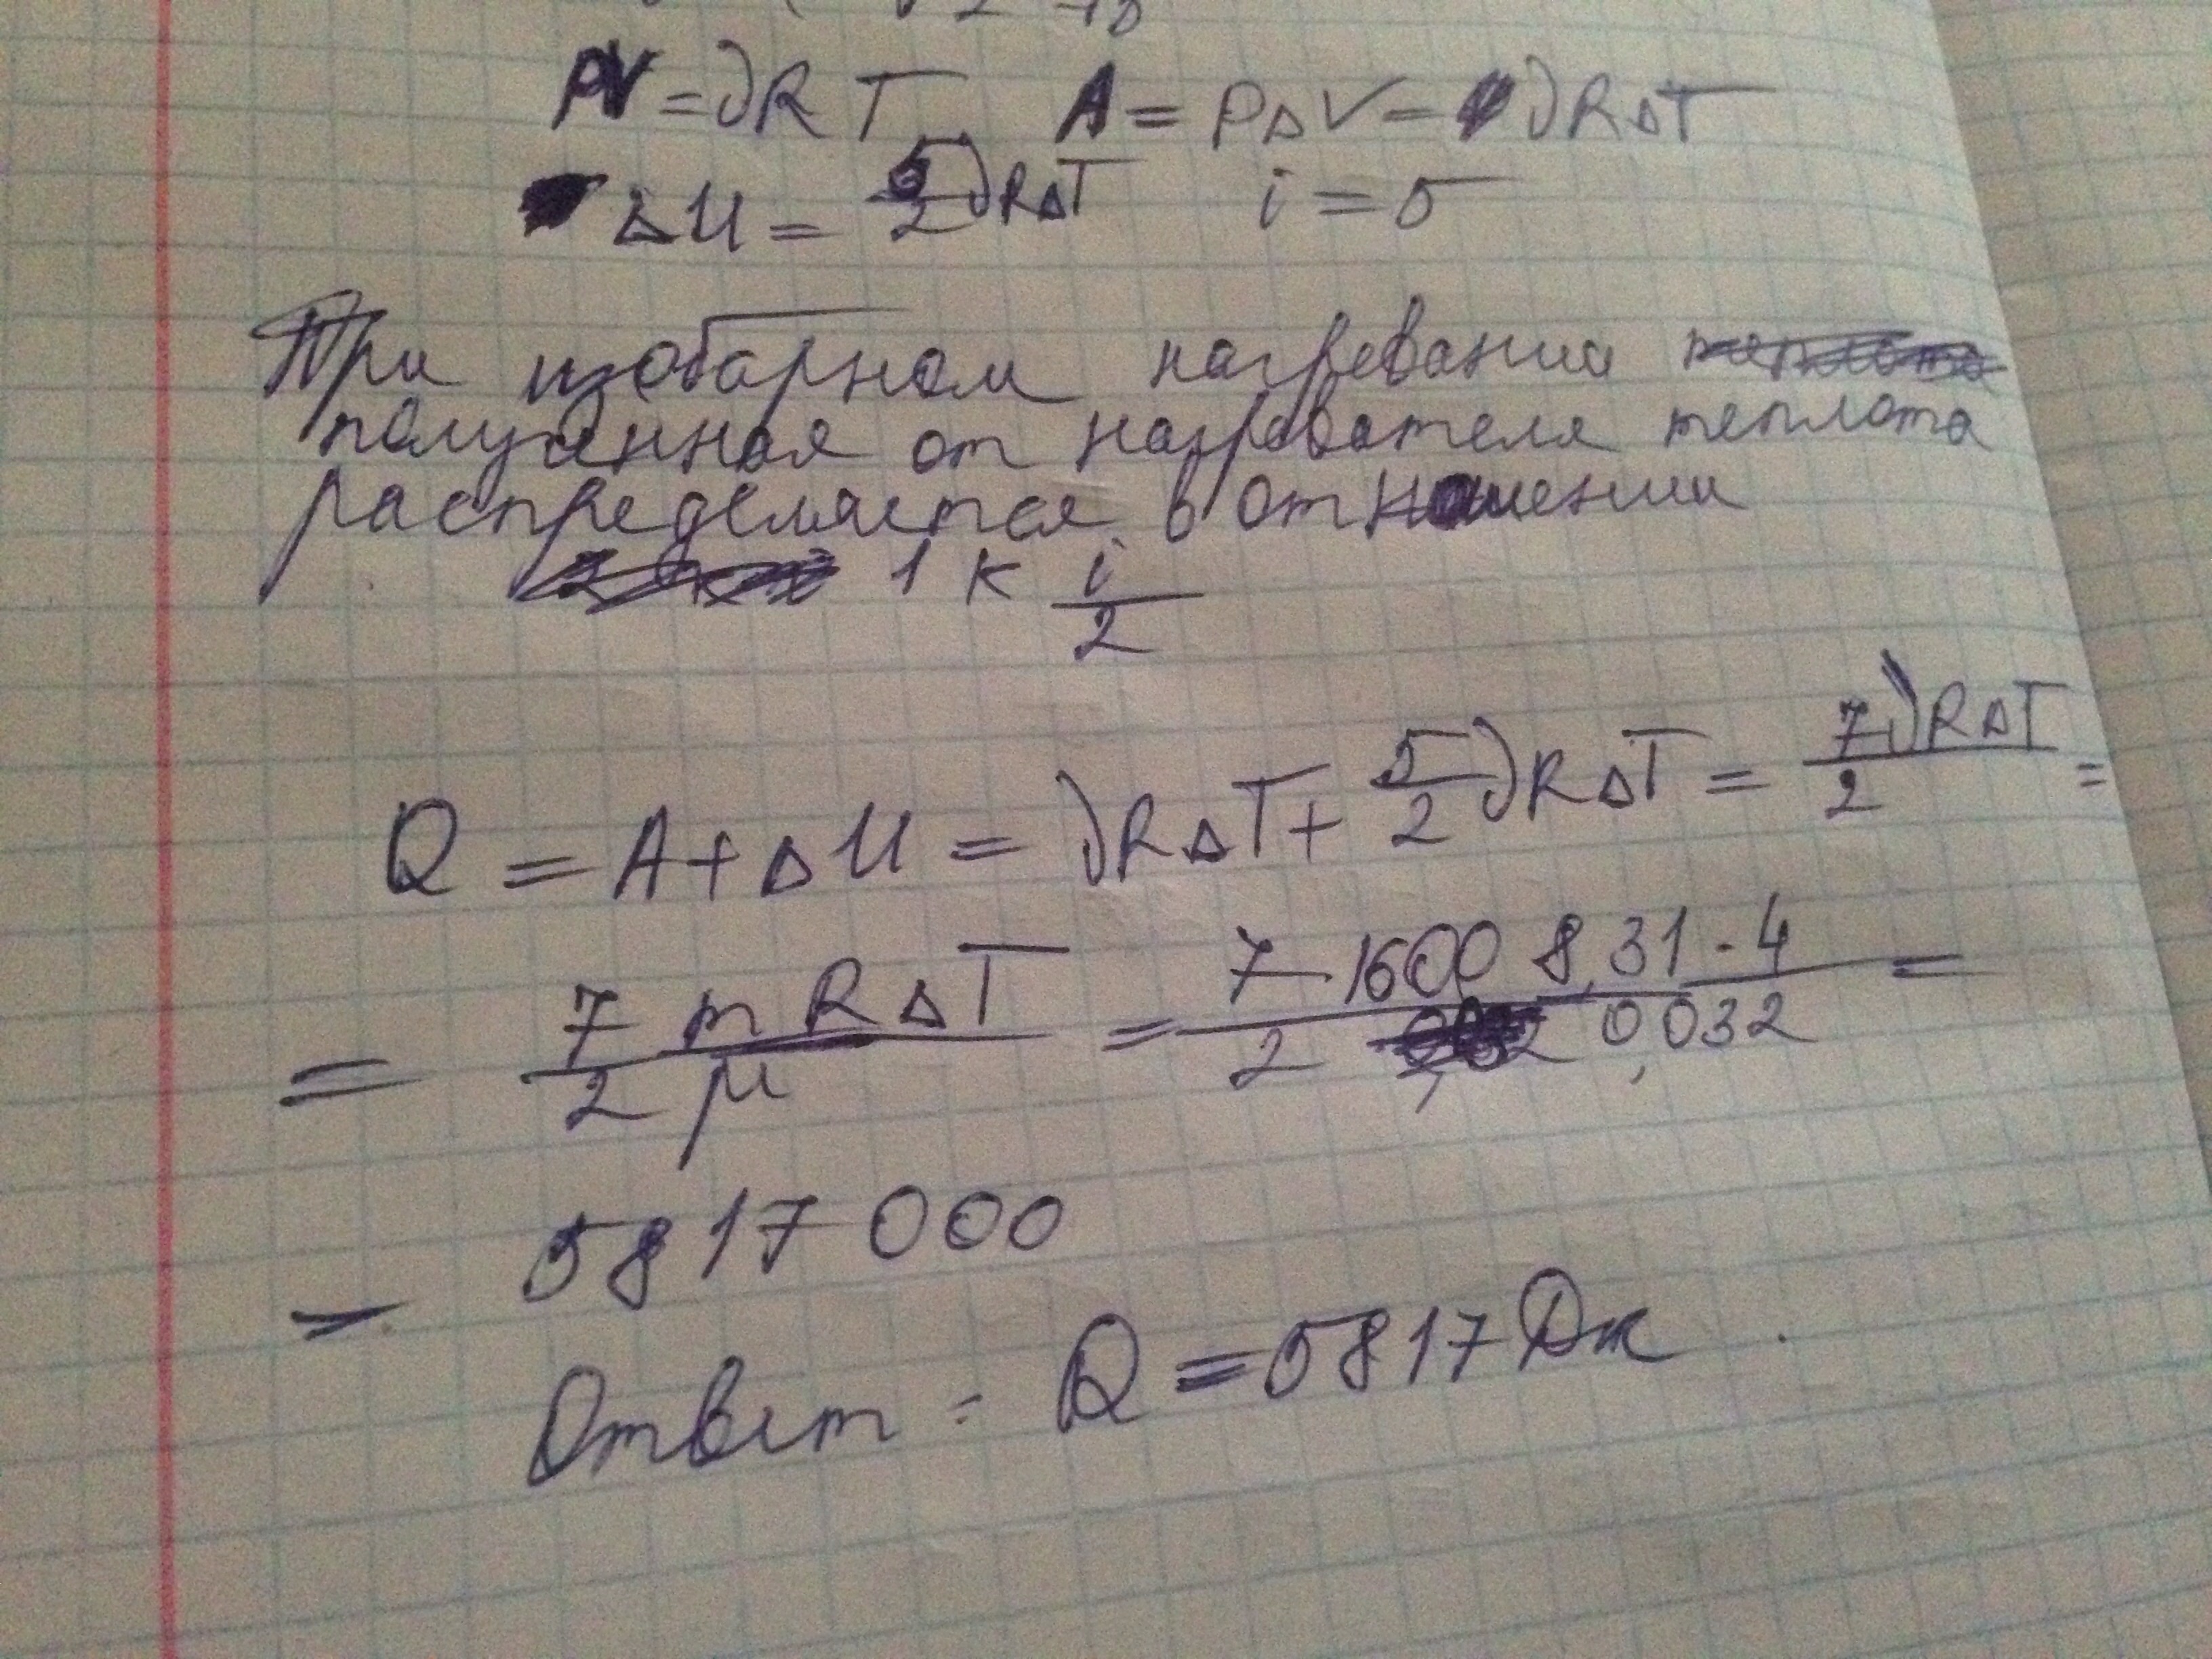 PV = νRT A = PΔV = νRΔT
ΔU = 5/2 νRΔT i = 5
При изобарном нагревании
полученная от нагревателя теплота
распределяется в отношении
1 к i/2
Q = A + ΔU = νRΔT + 5/2 νRΔT = 7νRΔT/2 =
= 7 m RΔT / 2 μ = 7 · 1600 8,31 · 4 / 2 0,032 =
= 5817 000
Ответ: Q = 5817 Дж